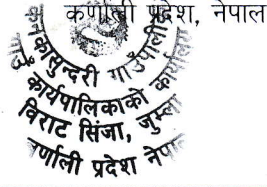 कर्णाली प्रदेश, नेपाल
कनकासुन्दरी गाउँपालिका
गाउँ कार्यपालिकाको कार्यालय
विराट सिंजा, जुम्ला
कर्णाली प्रदेश नेपाल